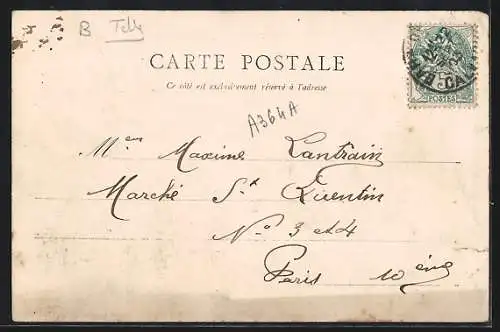 B Tels
CARTE POSTALE
Ce côté est exclusivement réservé à l'adresse
A364A
Maxime Lantrain
Marché St Quentin
No 3 et 4
Paris 10ème
POSTES